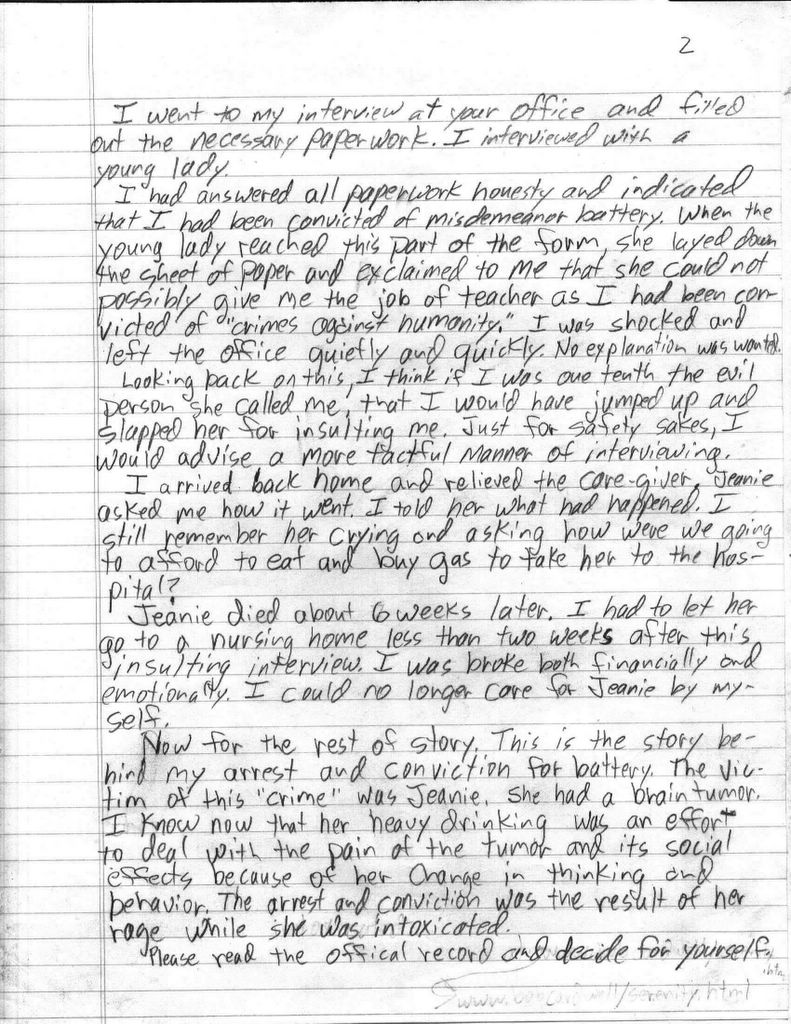 2
I went to my interview at your office and filled
out the necessary paperwork. I interviewed with a
young lady.
I had answered all paperwork honesty and indicated
that I had been convicted of misdemeanor battery. When the
young lady reached this part of the form, she layed down
the sheet of paper and exclaimed to me that she could not
possibly give me the job of teacher as I had been con-
victed of "crimes against humanity." I was shocked and
left the office quietly and quickly. No explanation was wanted.
Looking back on this, I think if I was one tenth the evil
person she called me, that I would have jumped up and
slapped her for insulting me. Just for safety sakes, I
would advise a more tactful manner of interviewing.
I arrived back home and relieved the care-giver. Jeanie
asked me how it went. I told her what had happened. I
still remember her crying and asking how were we going
to afford to eat and buy gas to take her to the hos-
pital?
Jeanie died about 6 weeks later. I had to let her
go to a nursing home less than two weeks after this
insulting interview. I was broke both financially and
emotionally. I could no longer care for Jeanie by my-
self.
Now for the rest of story. This is the story be-
hind my arrest and conviction for battery. The vic-
tim of this "crime" was Jeanie. She had a brain tumor.
I know now that her heavy drinking was an effort
to deal with the pain of the tumor and its social
effects because of her change in thinking and
behavior. The arrest and conviction was the result of her
rage while she was intoxicated.
Please read the offical record and decide for yourself.
/serenity.html